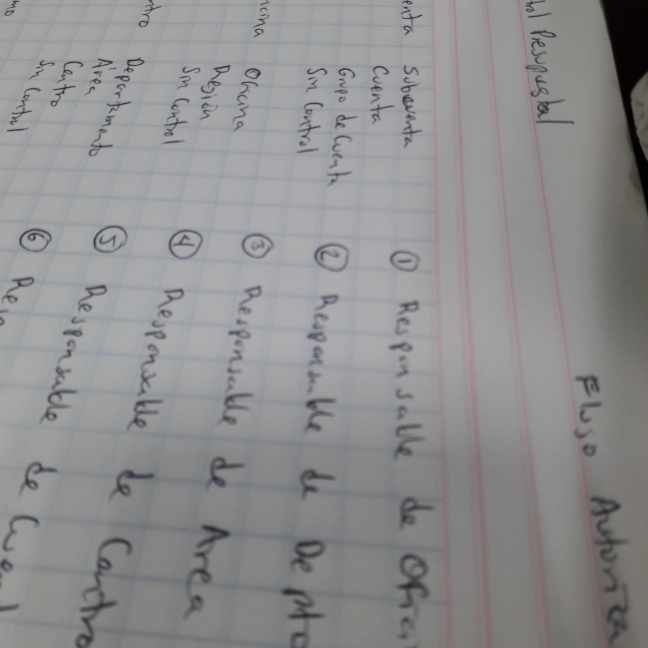 Presupuestal
Flujo Autoriza
Subcuenta
Cuenta
Grupo de Cuenta
Sin Control
Oficina
Región
Sin Control
Departamento
Área
Centro
Sin Control
① Responsable de Ofici
② Responsable de Depto
③ Responsable de Area
④ Responsable de Centro
⑤ Responsable de Cuent
⑥ Resp